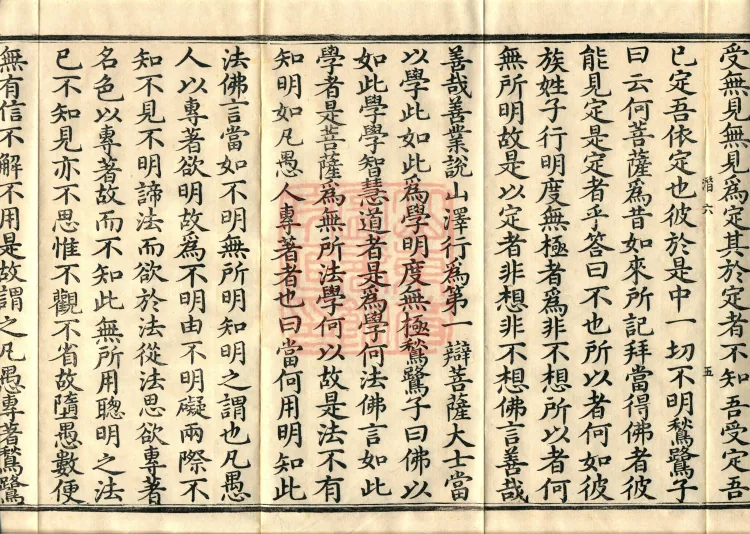 受無見無見爲定其於定者不知吾受定吾
已定吾依定也彼於是中一切不明鶖鷺子
潛六
五
曰云何菩薩爲昔如來所記拜當得佛者彼
能見定是定者乎答曰不也所以者何如彼
族姓子行明度無極者爲非不想所以者何
無所明故是以定者非想非不想佛言善哉
善哉善業說山澤行爲第一辯菩薩大士當
以學此如此爲學明度無極鶖鷺子曰佛以
如此學學智慧道者是爲學何法佛言如此
學者是菩薩爲無所法學何以故是法不有
知明如凡愚人專著者也曰當何用明知此
法佛言當如不明無所明知明之謂也凡愚
人以專著欲明故爲不明由不明礙兩際不
知不見不明諦法而欲於法從法思欲專著
名色以專著故而不知此無所用聰明之法
已不知見亦不思惟不觀不省故墮愚數便
無有信不解不用是故謂之凡愚專著鶖鷺